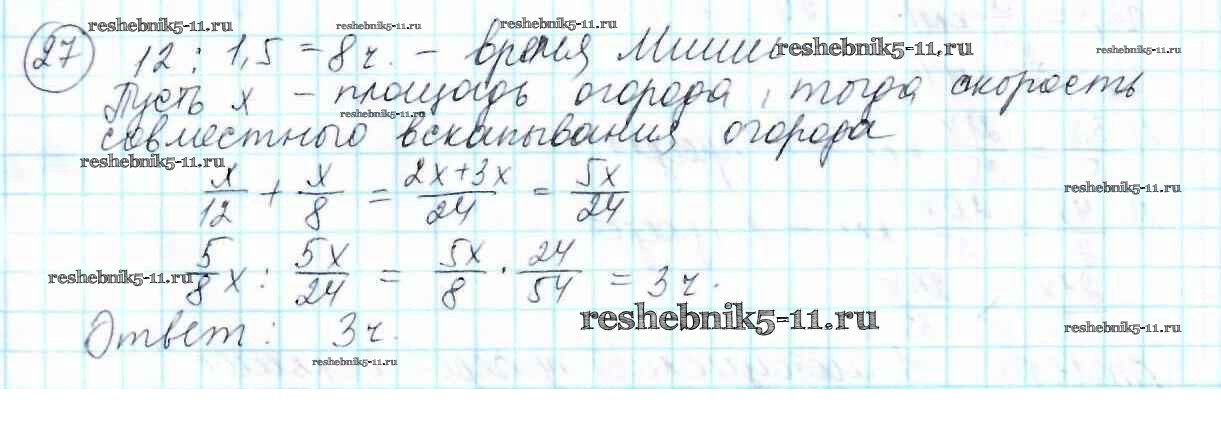 reshebnik5-11.ru reshebnik5-11.ru reshebnik5-11.ru
27 12 : 1,5 = 8 ч. – время Миши reshebnik5-11.ru reshebnik5-11.ru
Пусть x – площадь огорода, тогда скорость
reshebnik5-11.ru
совместного вскапывания огорода
reshebnik5-11.ru
x/12 + x/8 = 2x+3x/24 = 5x/24 reshebnik5-11.ru
reshebnik5-11.ru 5/8 x : 5x/24 = 5x/8 · 24/54 = 3 ч.
reshebnik5-11.ru reshebnik5-11.ru
Ответ: 3 ч.
reshebnik5-11.ru